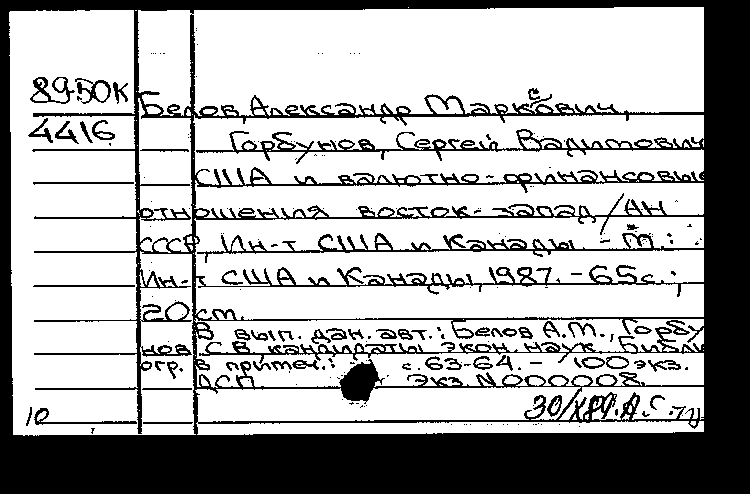 89-БОК
Белов, Александр Маркович,
4416
Горбунов, Сергей Вадимович
США и валютно-финансовые
отношения восток-запад / АН
СССР, Ин-т США и Канады. - М.:
Ин-т США и Канады, 1987. - 65с.;
20 cm.
В вып. дан. авт.: Белов А.М., Горбу
нов С.В кандидаты экон. наук. Библи
огр. в примеч.: с. 63-64. - 100 экз.
ДСП Экз. N000008.
10